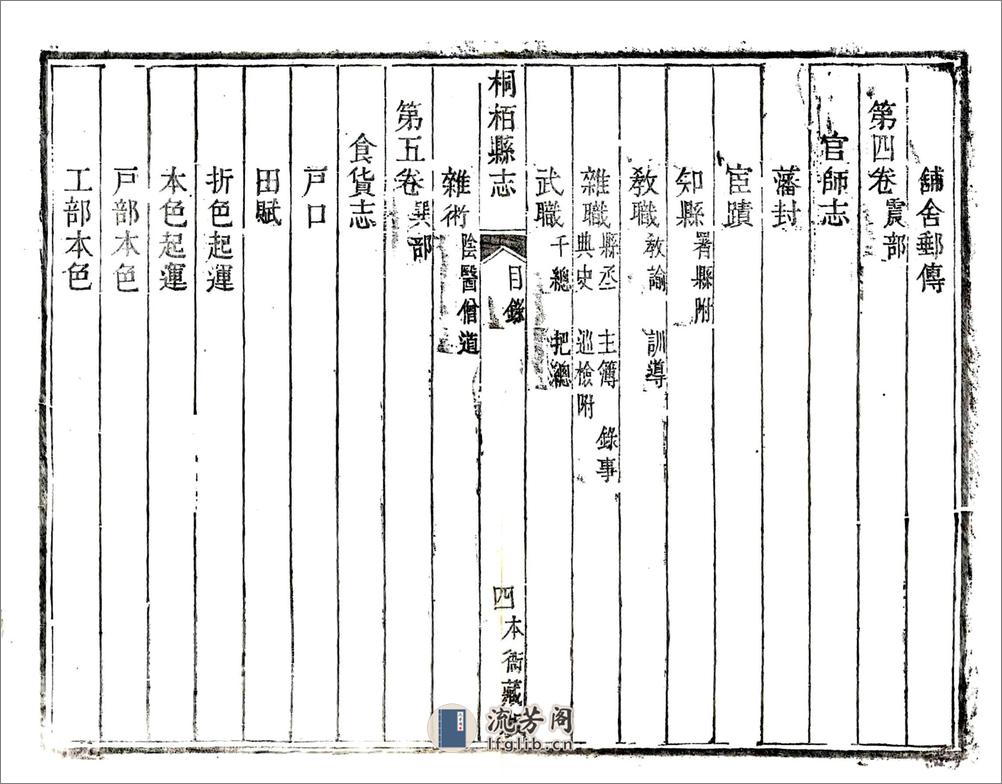 舖舍郵傳
第四卷震部
官師志
藩封
宦蹟
知縣署縣附
教職教諭 訓導
雜職縣丞 主簿 錄事
典史 巡檢附
武職千總 把總
雜術陰醫僧道
桐栢縣志 目錄 四 本衙藏
第五卷巽部
食貨志
戸口
田賦
折色起運
本色起運
戸部本色
工部本色
流芳阁
lfglib.cn